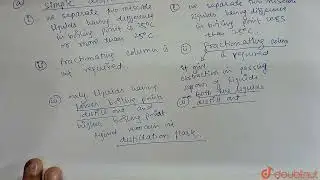 (a) simple
(i) we separate two miscible
liquids having difference
in boiling point is 25°C
or more than 25°C
(ii) fractionating column is
not required
(iii) only liquids having
lower boiling point
distill out and
higher boiling point
liquid remain in
distillation flask.
(i) we separate two miscible
liquids having difference
in boiling point less
than 25°C
(ii) fractionating column
is required
it put
obstruction in passing
of liquids
(iii) both the liquids
distill out
doubtnut